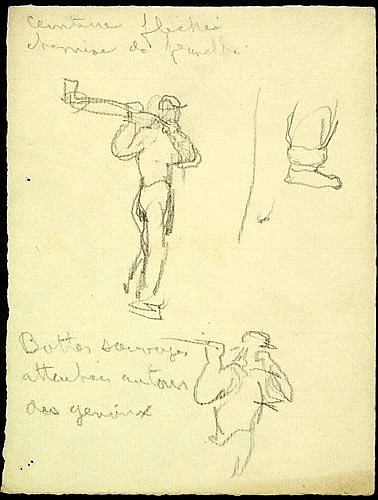 ceinture flechée
chemise de flanelle
Bottes sauvages
attachées autour
des genoux